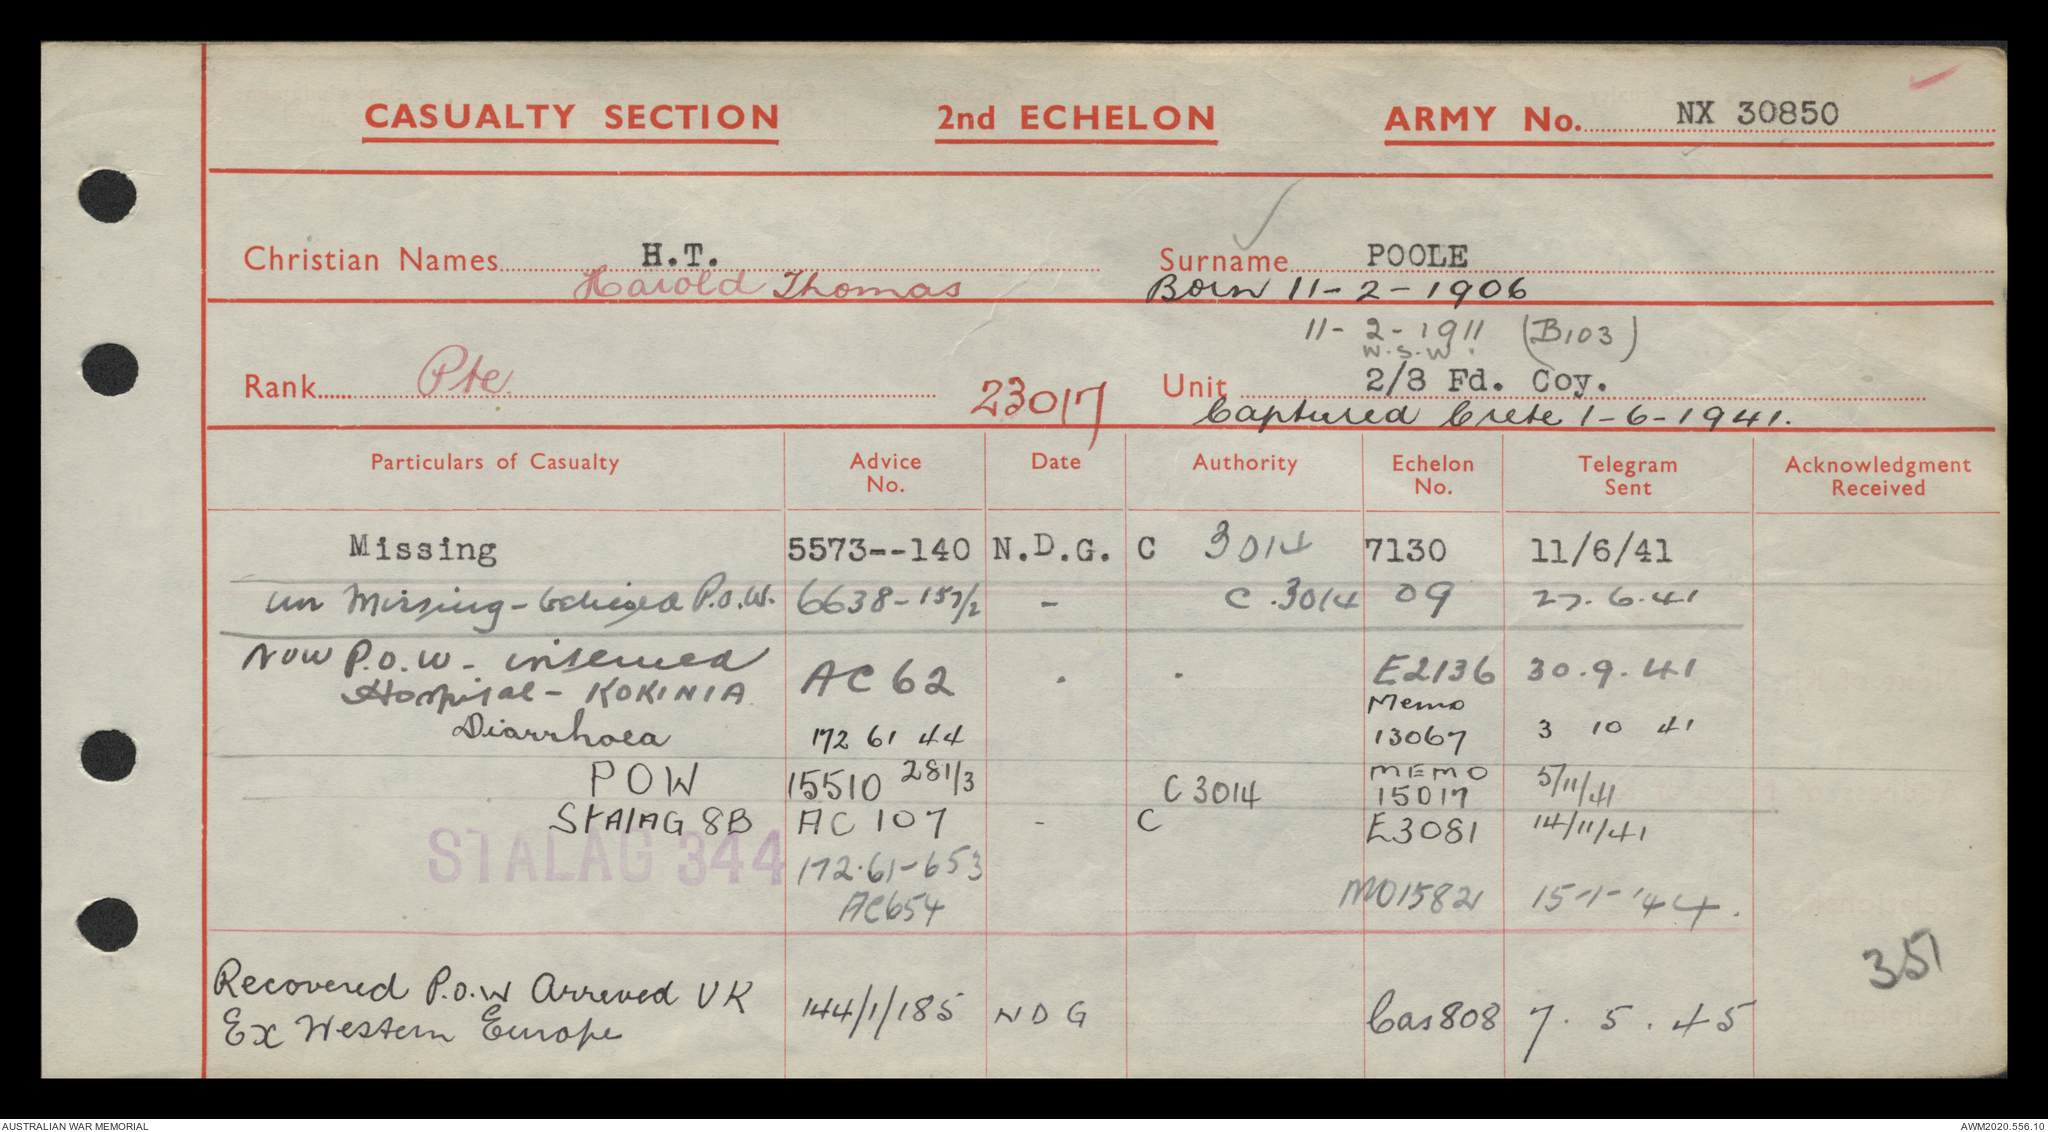 CASUALTY SECTION 2nd ECHELON ARMY No. NX 30850
Christian Names H.T. Surname POOLE
Harold Thomas Born 11-2-1906
11-2-1911 (B103)
N.S.W.
Rank Pte. 23017 Unit 2/8 Fd. Coy.
Captured Crete 1-6-1941.
Particulars of Casualty Advice No. Date Authority Echelon No. Telegram Sent Acknowledgment Received
Missing 5573--140 N.D.G. C 3014 7130 11/6/41
Missing - believed P.O.W. 6638-157/2 - C.3014 09 27.6.41
Now P.O.W - interned AC 62 . . E2136 30.9.41
Hospital - KOKINIA Memo
Diarrhoea 172 61 44 13067 3 10 41
POW 15510 281/3 C 3014 MEMO 15017 5/11/41
StAlAG 8B AC 107 - C E3081 14/11/41
STALAG 344 172.61-653
AC654 MO15821 15-1-'44.
351
Recovered P.O.W Arrived UK 144/1/185 N D G Cas808 7.5.45
Ex Western Europe
AUSTRALIAN WAR MEMORIAL AWM2020.556.10